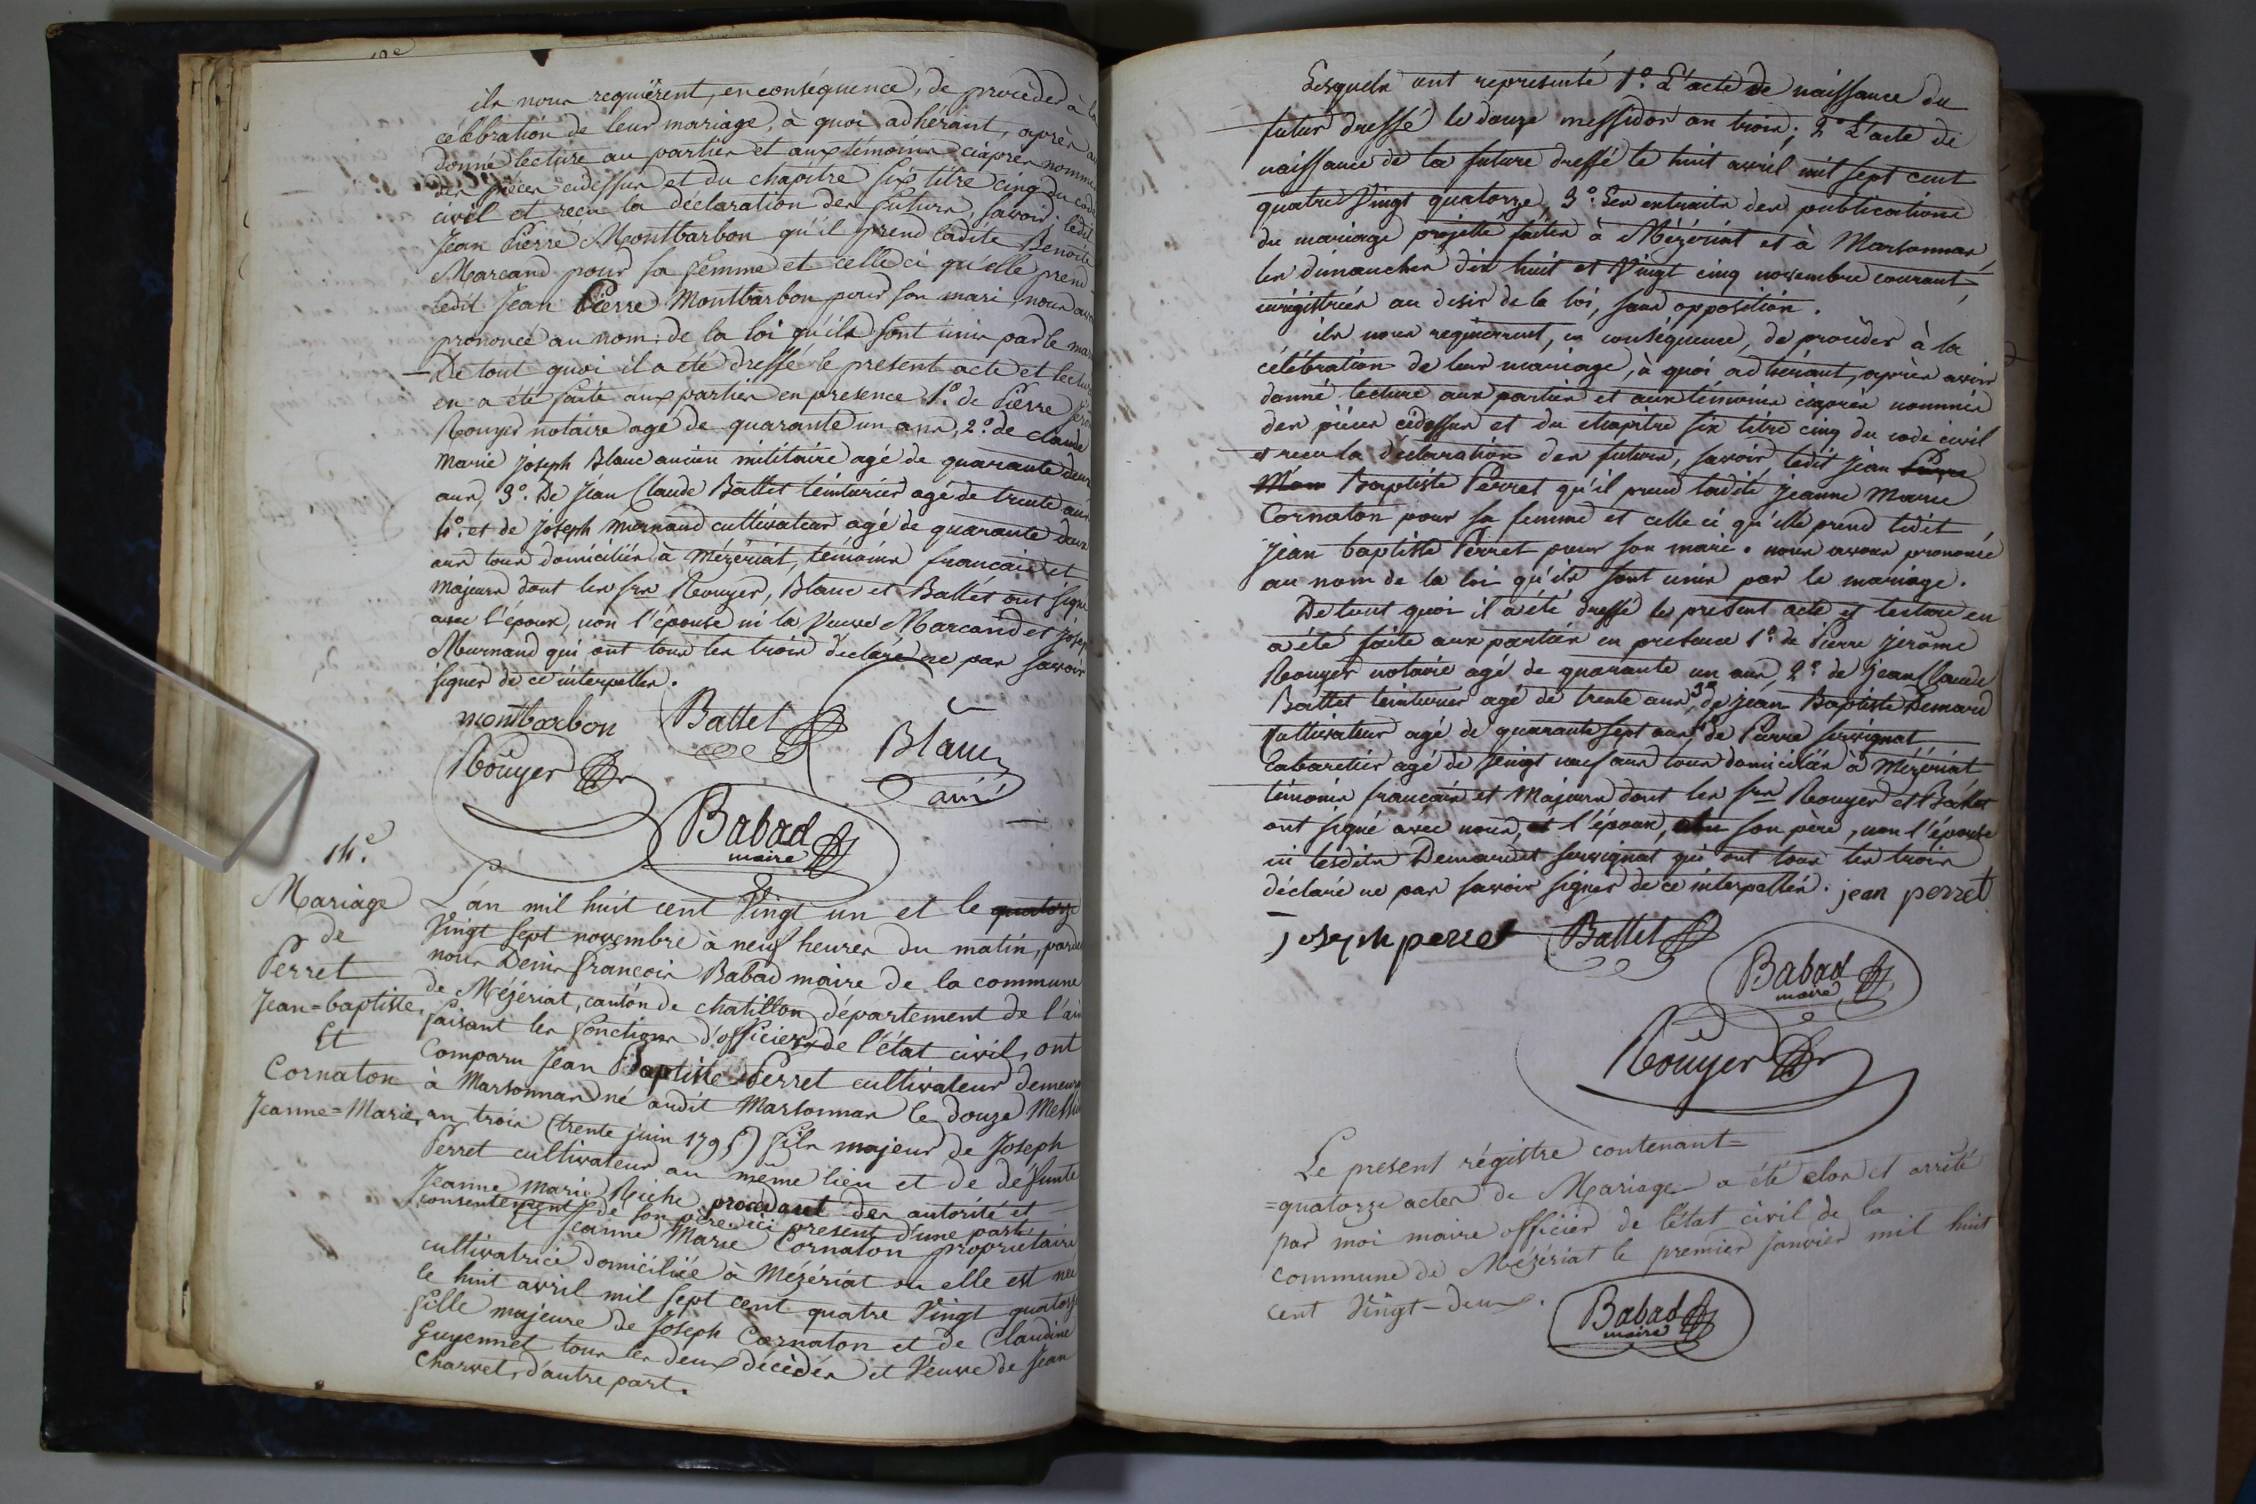 ils nous requièrent, en conséquence, de procéder à la
célébration de leur mariage, à quoi adhérant, après
donné lecture au parties et aux témoins ciaprès nommé
des pièces cidessus et du chapitre six titre cinq du code
civil et recu la déclaration des futurs, savoir: ledit
Jean Pierre Montbarbon qu'il prend ladite Benoite
Marcand pour sa femme et celle ci qu'elle prend
ledit Jean Pierre Montbarbon pour son mari, nous avo
prononcé au nom de la loi qu'ils sont unis par le ma
De tout quoi il a été dressé le present acte et lectu
en a été faite aux parties en presence 1.° de Pierre
Rouyer notaire agé de quarante un ans, 2.° de claude
marie Joseph Blanc ancien militaire agé de quarante deux
ans, 3.° De Jean Claude Battet teinturier agé de trente ans
4.° et de Joseph Murnand cultivateur agé de quarante deux
ans tous domiciliés à Mézériat, témoins francais et
majeurs dont les srs Rouyer, Blanc et Battet ont signé
avec l'époux, non l'épouse ni la Veuve Marcand et Josep
Murnand qui ont tous les trois déclaré ne pas savoir
signer de ce interpellés.
montbarbon Battet
Blanc
ainé
Rouyer
Babad
maire
14.e
Mariage
de
Perret
Jean=baptiste
Et
Cornaton
Jeanne=Marie
L'an mil huit cent Vingt un et le quatorze
Vingt sept novembre à neuf heures du matin, parde
nous Denis françois Babad maire de la commune
de Mézériat, cantón de chatillon département de l'ain
faisant les fonctions d'officier de l'état civil, ont
Comparu Jean Baptiste Perret cultivateur demeura
à Marsonnas né audit Marsonnas le douze Messid
an trois (trente juin 1795) fils majeur de Joseph
Perret cultivateur au même lieu et de défunte
Jeanne Marie Riche, procédant des autorité et
consentement de son père ici present d'une part.
Et Jeanne Marie Cornaton propriétaire
cultivatrice domiciliée à Mézériat où elle est née
le huit avril mil sept cent quatre Vingt quatorze
fille majeure de Joseph Cornaton et de Claudine
Guyennet tous les deux décédés et Veuve de Jean
Charvet, d'autre part.
Lesquels ont representé 1.° L'acte de naissance du
futur dressé le douze messidor an trois; 2.° L'acte de
naissance de la future dressé le huit avril mil sept cent
quatre Vingt quatorze, 3.° Les extraits des publications
du mariage projetté faites à Mézériat et à Marsonnas
les dimanches dix huit et Vingt cinq novembre courant,
enrégistrées au desir de la loi, sans opposition.
ils nous requierrent, en conséquence, de procéder à la
célébration de leur mariage, à quoi adhérant, après avoir
donné lecture aux parties et aux témoins ciaprès nommés
des pièces cidessus et du chapitre six titre cinq du code civil
et recu la déclaration des futurs, savoir ledit Jean Pierre
Mon Baptiste Perret qu'il prend ladite Jeanne Marie
Cornaton pour sa femme et celle ci qu'elle prend ledit
Jean baptiste Perret pour son mari. nous avons prononcé
au nom de la loi qu'ils sont unis par le mariage.
De tout quoi il a été dressé le présent acte et lecture en
a été faite aux parties en presence 1.° de Pierre Jérôme
Rouyer notaire agé de quarante un ans, 2.° de Jean Claude
Battet teinturier agé de trente ans, 3° de Jean Baptiste Demard
cultivateur agé de quarante sept ans, 4° de Pierre servignat
Cabaretier agé de Vingt neuf ans tous domiciliés à Mézériat
témoins francais et Majeurs dont les srs Rouyer et Battet
ont signé avec nous, et l'époux, son père, non l'épouse
ni lesdits Demard et servignat qui ont tous les trois
déclaré ne pas savoir signer de ce interpellés. jean perret
joseph perret Battet
Babad
maire
Rouyer
Le present régistre contenant=
=quatorze actes de Mariage a été clos et arrêté
par moi maire officier de l'état civil de la
commune de Mézériat le premier Janvier mil huit
cent Vingt-deux.
Babad
maire